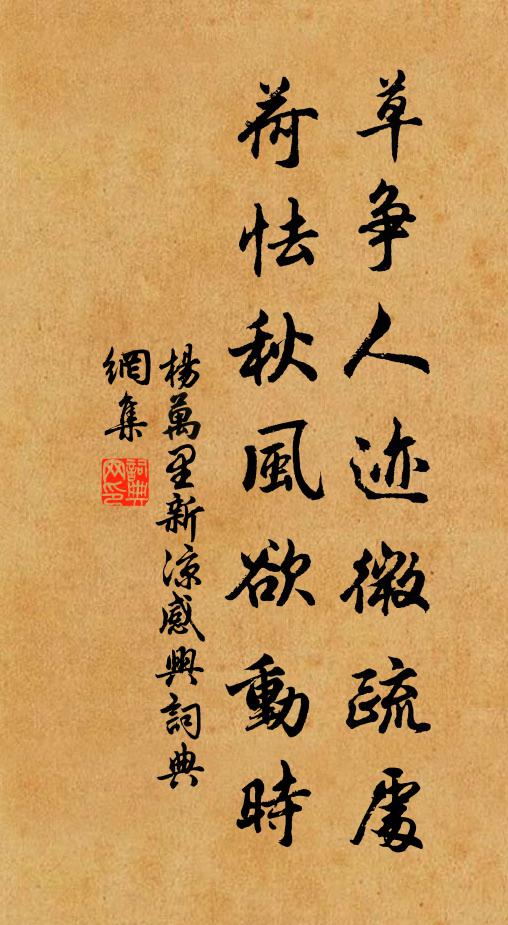 草争人迹微疏處
荷怯秋風欲動時
楊萬里新涼感興詞典
網集
詞典
网印